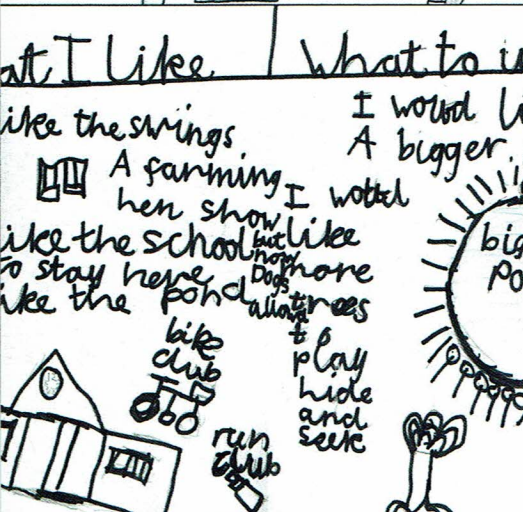 at I like
What to i
ike the swings
A farming
hen show
ike the school
o stay here
ike the pond
but
now
Dogs
allowd
bike
club
run
club
I would li
A bigger
I would
like
more
trees
to
play
hide
and
seek
big
po